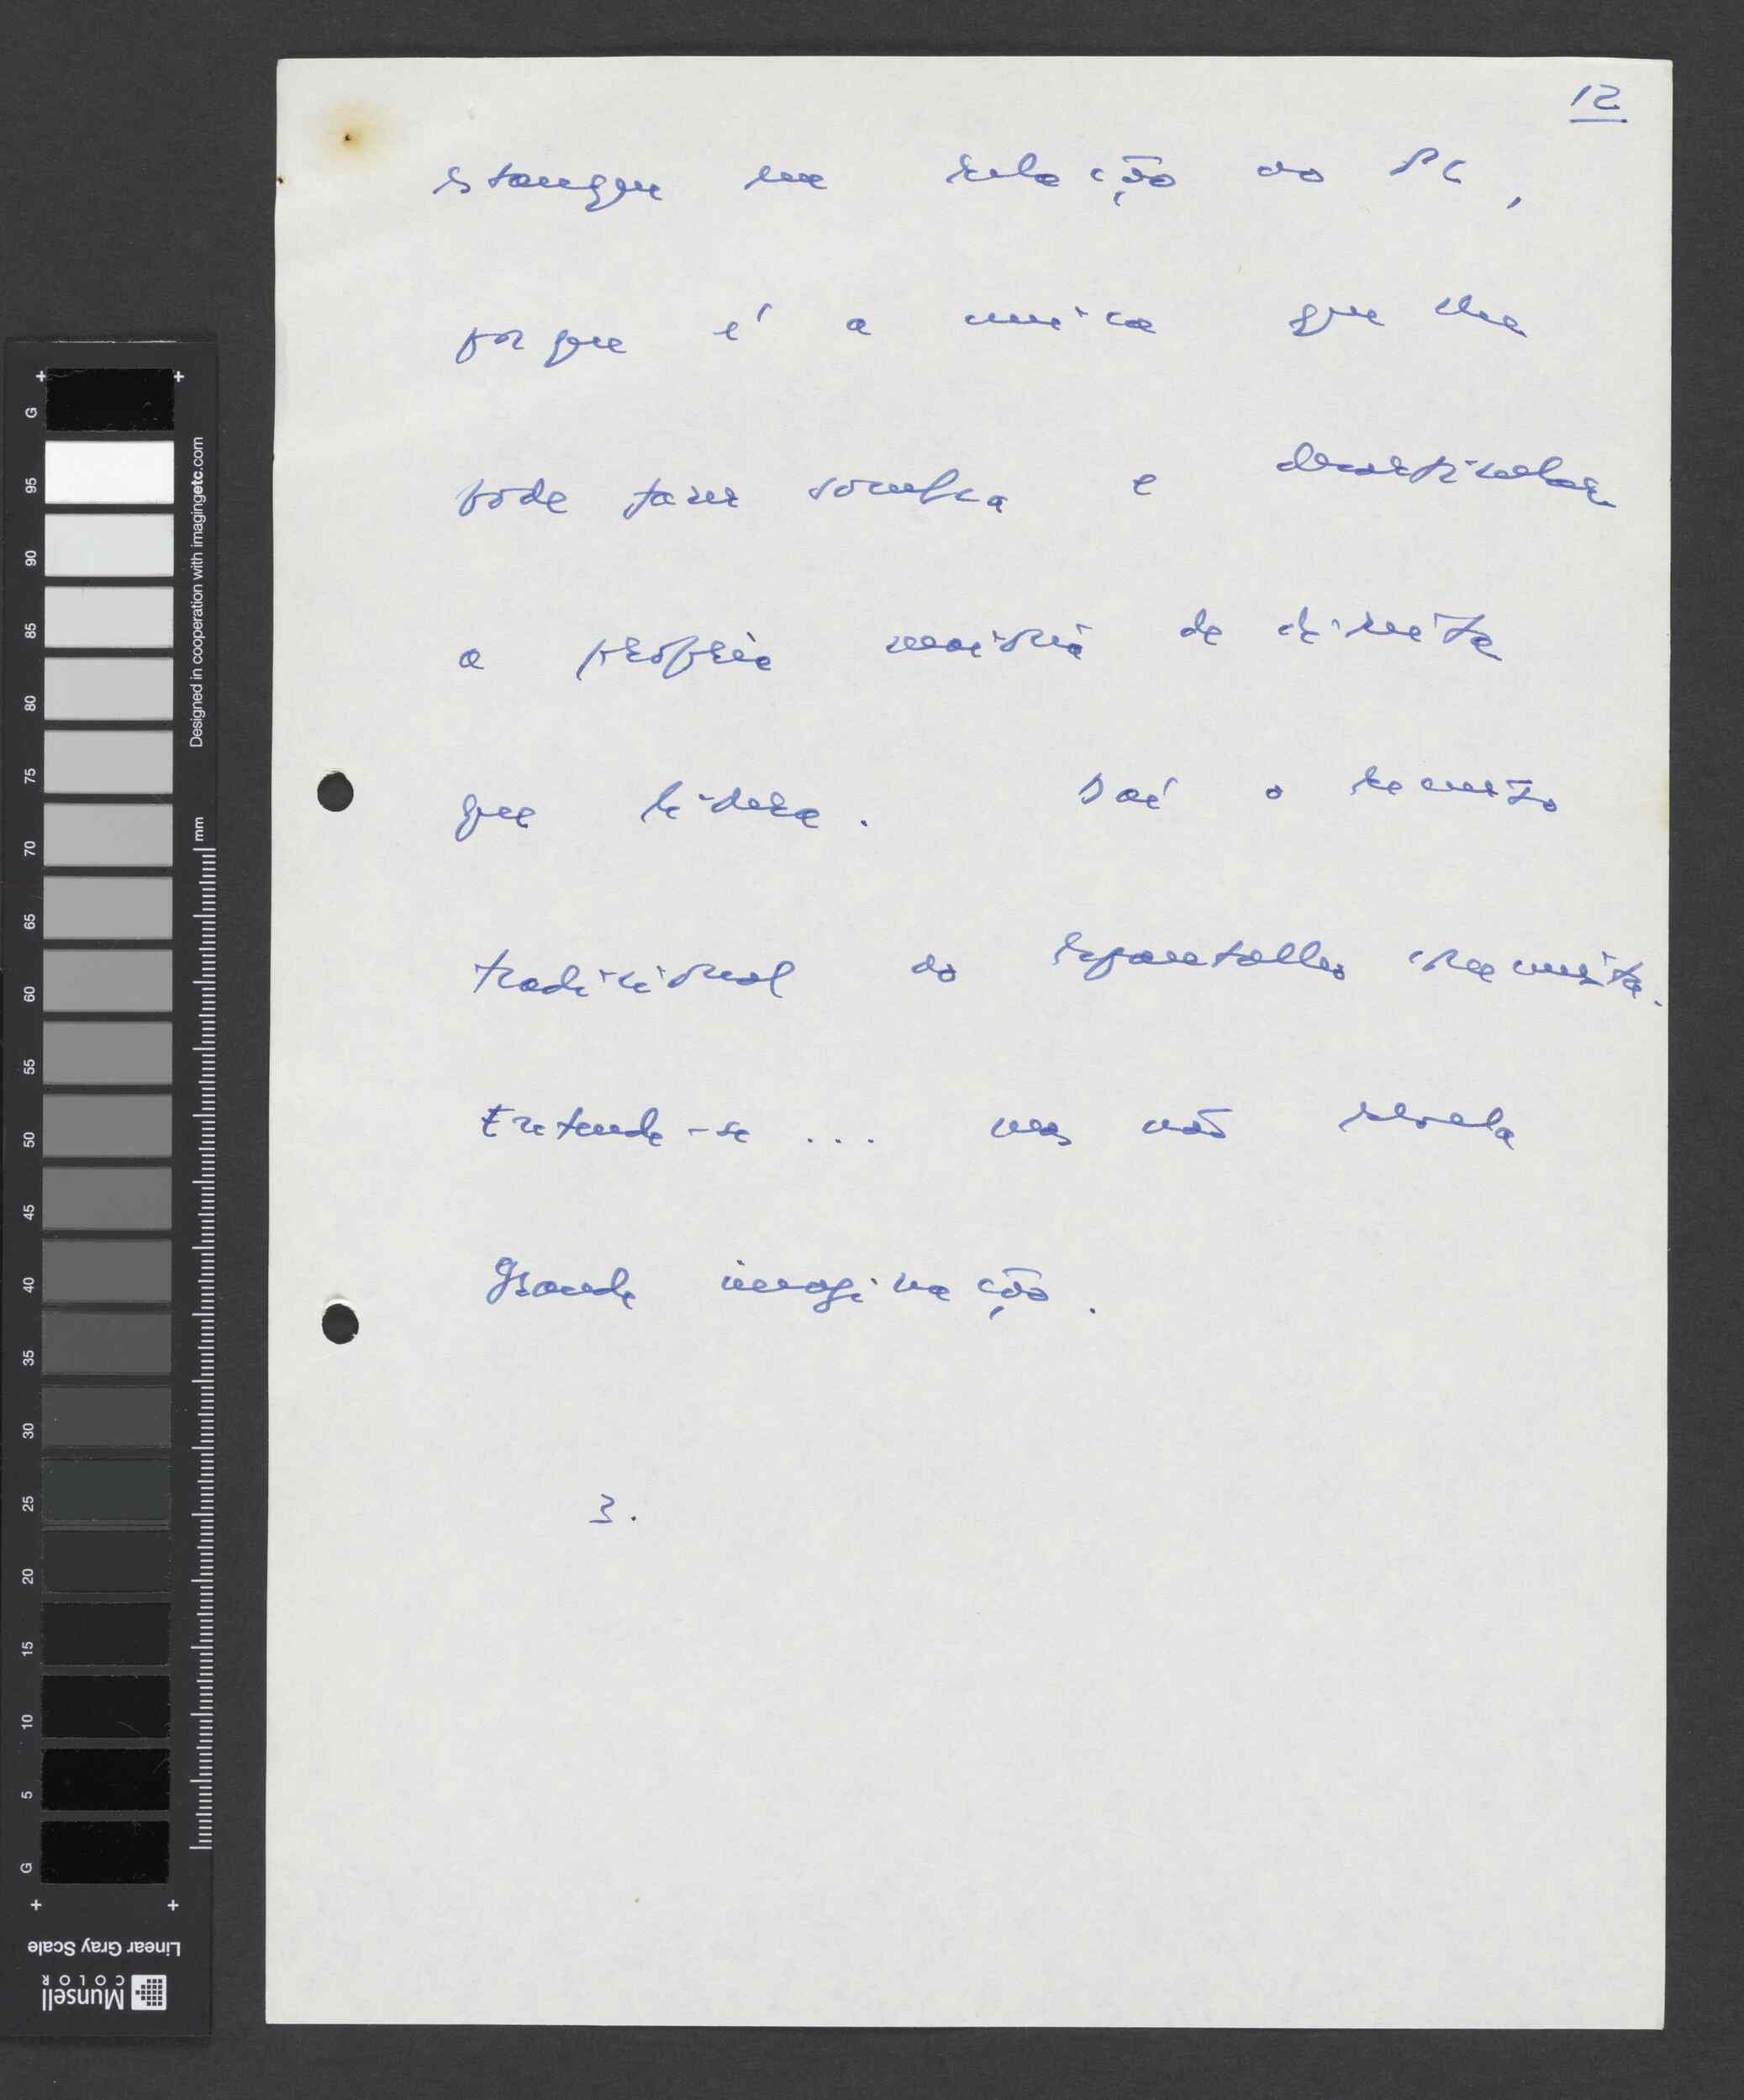 12
estanque na relação ao PC,
porque é a unica que lhe
pode fazer sombra e desarticular
a própria maioria de direita
que lidera. Daí o recurso
tradicional ao espantalho comunista.
Entende-se ... mas não revela
grande imaginação.
3.
G
95
90
85
80
75
70
65
60
55
50
45
40
35
30
25
20
15
10
5
G
Designed in cooperation with imagingetc.com
mm
Linear Gray Scale
Munsell
COLOR